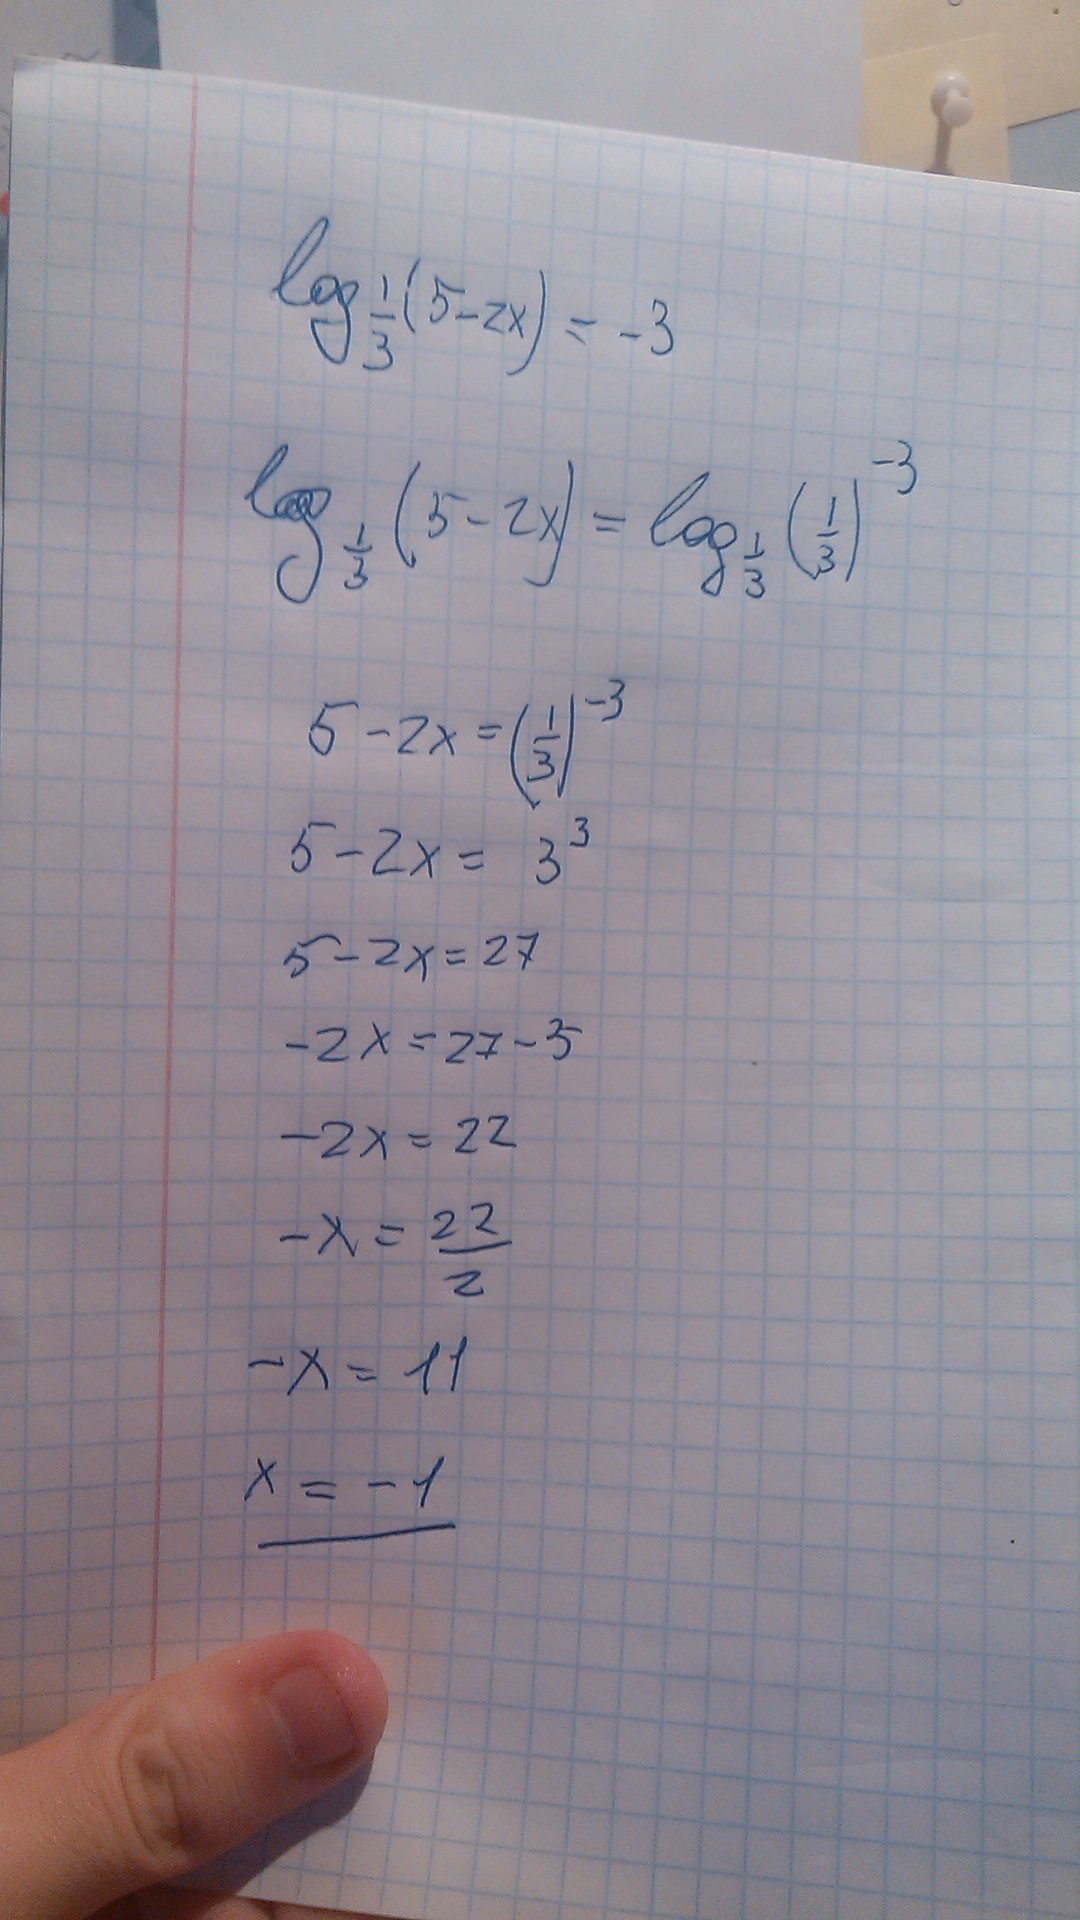 log_{1/3}(5-2x) = -3
log_{1/3}(5-2x) = log_{1/3}(1/3)^{-3}
5-2x = (1/3)^{-3}
5-2x = 3^3
5-2x = 27
-2x = 27-5
-2x = 22
-x = 22/2
-x = 11
x = -1